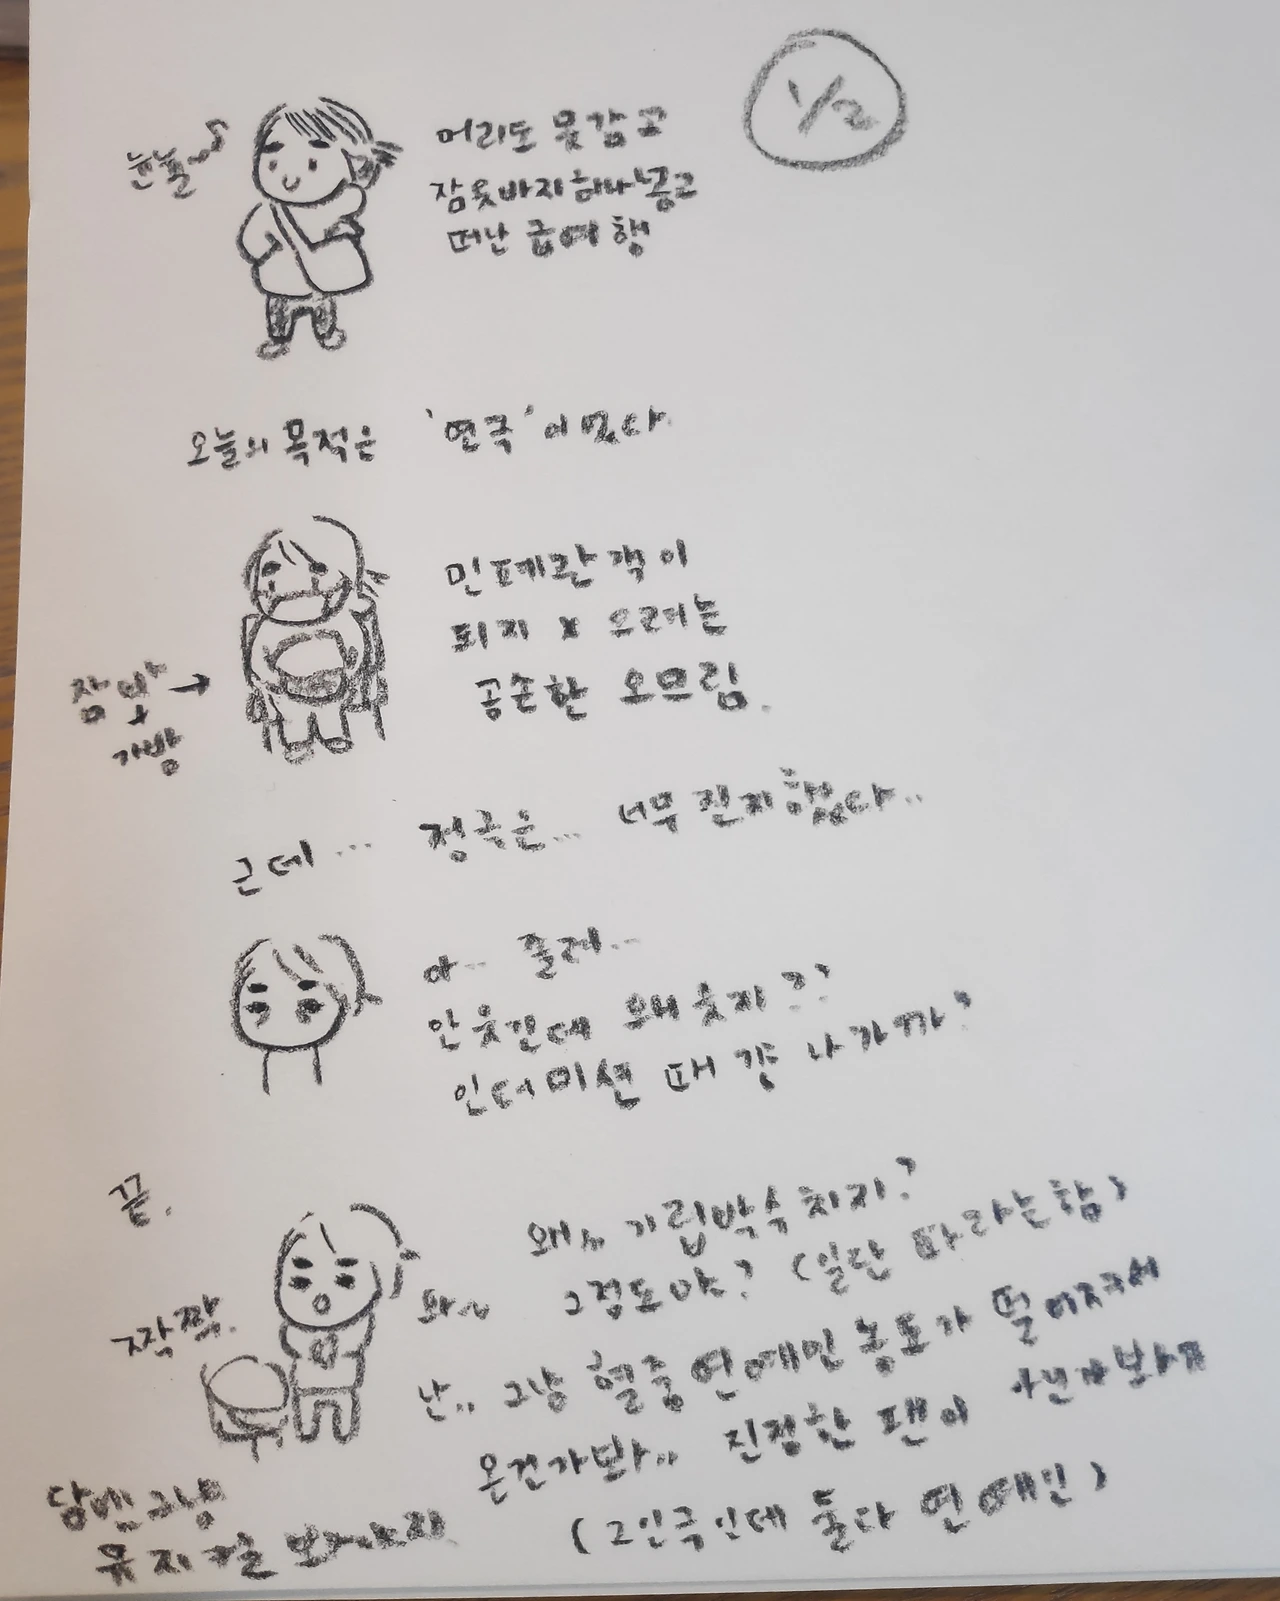 1/2
눈눌~♪
머리도 못감고
잠옷바지 하나 넣고
떠난 급여행
오늘의 목적은 '연극'이었다.
민폐관객이
되지 x 으려는
공손한 오므림.
잠바
+
가방
→
근데... 정극은... 너무 진지했다..
아.. 졸려...
안웃긴데 왜 웃지??
인터미션 때 걍 나가까?
끝.
짝짝.
와~
왜.. 기립박수 치지?
그정도야? (일단 따라는함)
난.. 그냥 혈중 연예인 농도가 떨어져서
온건가봐.. 진정한 팬이 아닌가보아
(2인극인데 둘다 연예인)
담엔 그냥
뮤지컬 보러